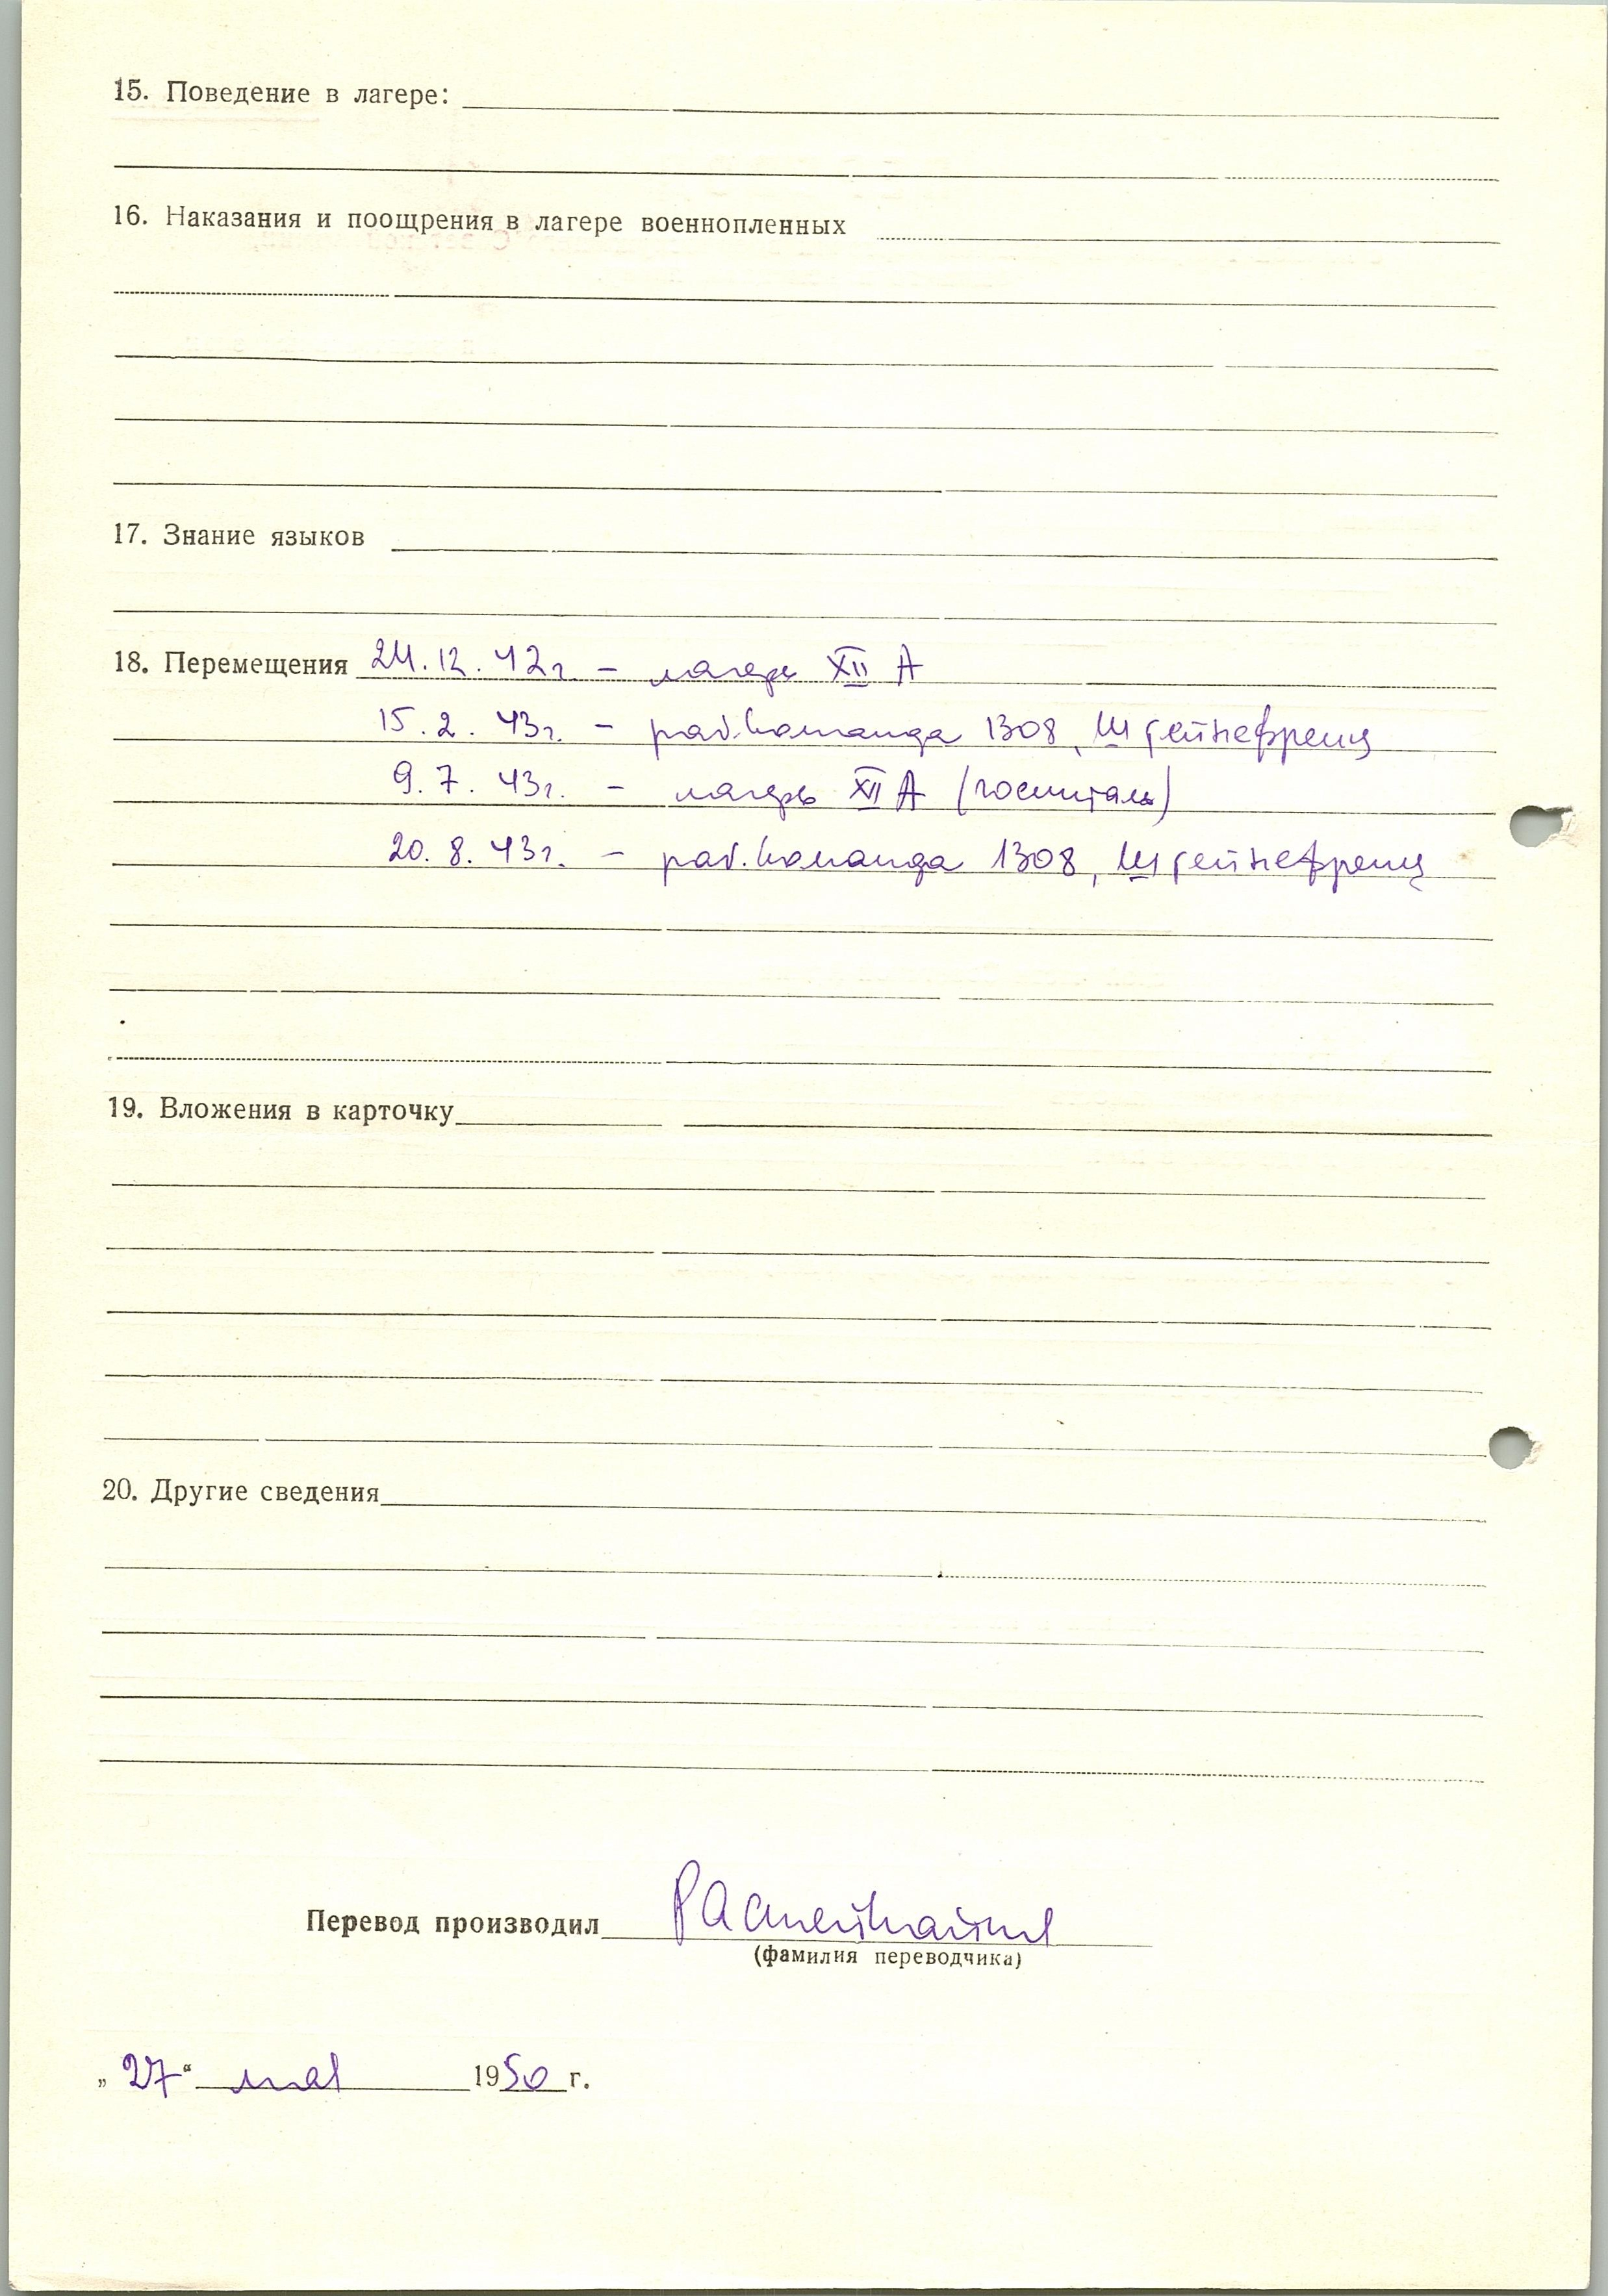 15. Поведение в лагере:
16. Наказания и поощрения в лагере военнопленных
17. Знание языков
18. Перемещения 24.12.42г. – лагерь XII А
15.2.43г. – раб.команда 1308, Штейнефренц
9.7.43г. – лагерь XII А (госпиталь)
20.8.43г. – раб.команда 1308, Штейнефренц
19. Вложения в карточку
20. Другие сведения
Перевод производил
(фамилия переводчика)
„27“ мая 1950 г.